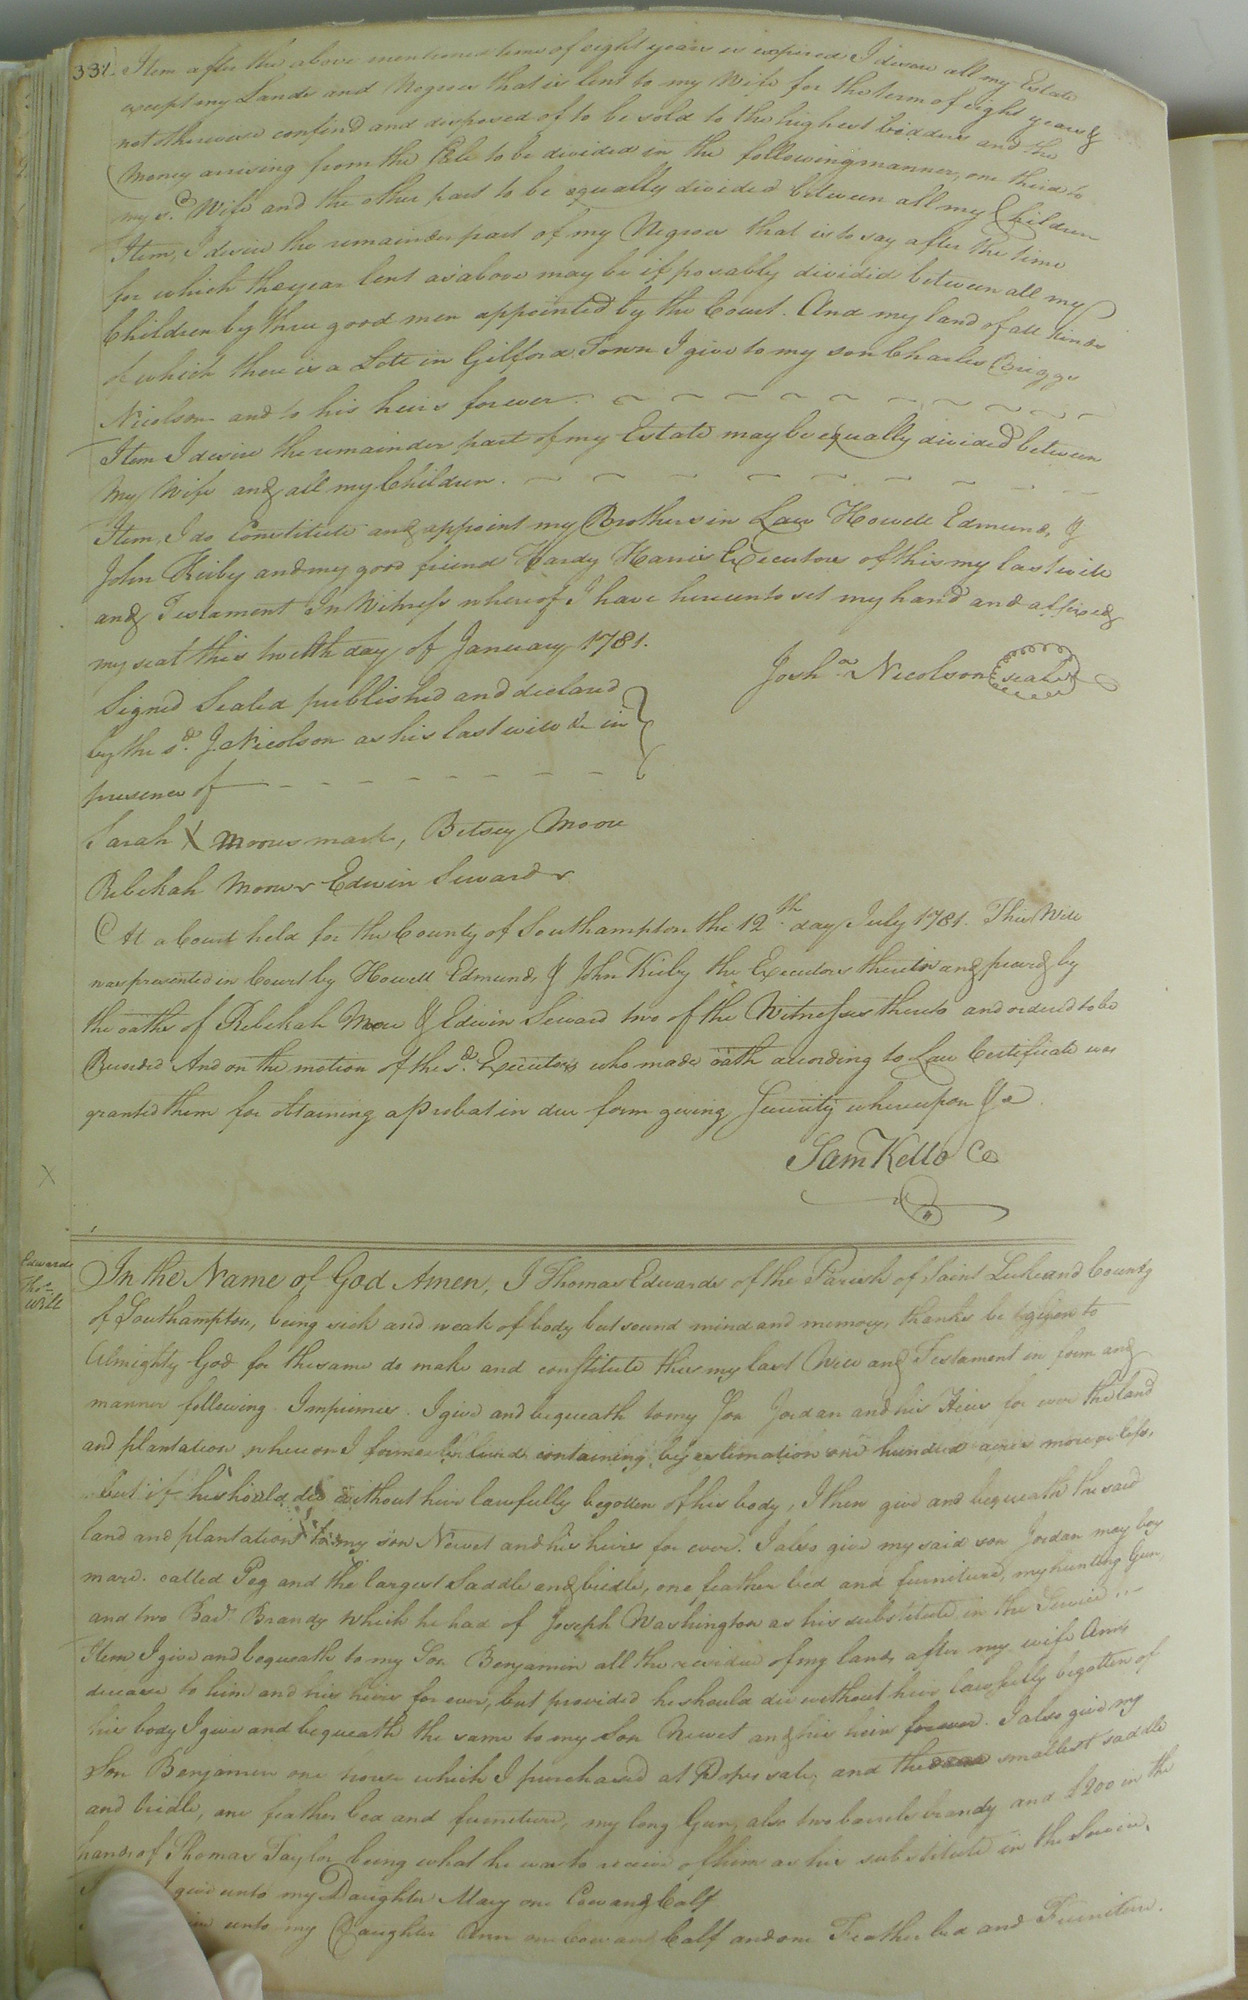 332. Item after the above mentioned time of eight years is expired I desire all my Estate
except my Lands and Negroes that is lent to my Wife for the term of eight years &
not otherwise confin'd and disposed of to be sold to the highest bidders and the
Money arising from the Sale to be divided in the following manner, one third to
my sd. Wife and the other part to be equally divided between all my Children
Item, I desire the remainder part of my Negroes that is to say after the time
for which they are lent as above may be if possably divided between all my
Children by three good men appointed by the Court. And my land of all kinds
of which there is a Lott in Gilford Town I give to my son Charles Briggs
Nicolson and to his heirs forever.
Item I desire the remainder part of my Estate may be equally divided between
My Wife and all my Children.
Item, I do Constitute and appoint my Brothers in Law Howell Edmunds, &
John Kirby and my good friend Hardy Harris Executors of this my last will
and Testament In Witness whereof I have hereunto set my hand and affixed
my seal this twelth day of January 1781.
Josha. Nicolson seal
Signed Sealed published and declared
by the sd. J. Nicolson as his last will &c in
presence of
Sarah X Moores mark, Betsey Moore
Rebekah Moore Edwin Seward
At a Court held for the County of Southampton the 12th. day July 1781. This Will
was presented in Court by Howell Edmunds & John Kirby the Executors thereto and proved by
the oaths of Rebekah Moore & Edwin Seward two of the Witnesses thereto and ordered to be
Recorded And on the motion of the sd. Executors who made oath according to Law Certificate was
granted them for obtaining a Probat in due form giving Security whereupon &c
Sam Kello CC
Edwards
Thos.
Will
In the Name of God Amen, I Thomas Edwards of the Parish of Saint Luke and County
of Southampton, being sick and weak of body but sound mind and memory, thanks be given to
Almighty God for the same do make and constitute this my last Will and Testament in form and
manner following. Imprimis. I give and bequeath to my Son Jordan and his Heirs for ever the land
and plantation whereon I formerly lived containing by estimation one hundred acres more or less,
but if he should die without heir lawfully begotten of his body, I then give and bequeath the said
land and plantation to my son Newet and his heirs for ever. I also give my said son Jordan may bay
mare. called Peg and the largest Saddle and bridle, one feather bed and furniture, my hunting Gun,
and two Barl. Brandy which he had of Joseph Washington as his substitute in the Service
Item I give and bequeath to my Son Benjamin all the residue of my land, after my wife Anns
decease to him and his heirs for ever, but provided he should die without heir lawfully begotten of
his body I give and bequeath the same to my Son Newet and his heirs forever. I also give my
Son Benjamin one horse which I purchased at Popes sale, and the smallest saddle
and bridle, one feather bed and furniture, my long Gun, also two barrels brandy and £200 in the
hands of Thomas Taylor being what he was to receive of him as his substitute in the Service.
I give unto my Daughter Mary one Cow and Calf
unto my Daughter Ann one Cow and Calf and one Feather bed and Furniture.